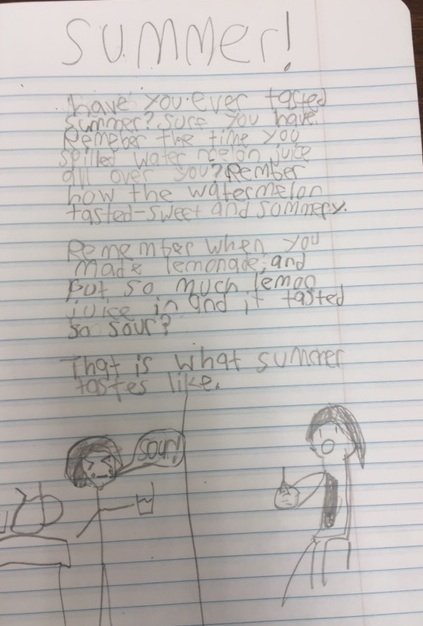 SUMMER!
have you ever tasted
summer? sure you have.
Remeber the time you
spilled water melon juice
all over you? Rember
how the watermelon
tasted-sweet and sommery.
Remember when you
made lemonade, and
put so much lemon
juice in and it tasted
so sour?
That is what summer
tastes like.
sour!